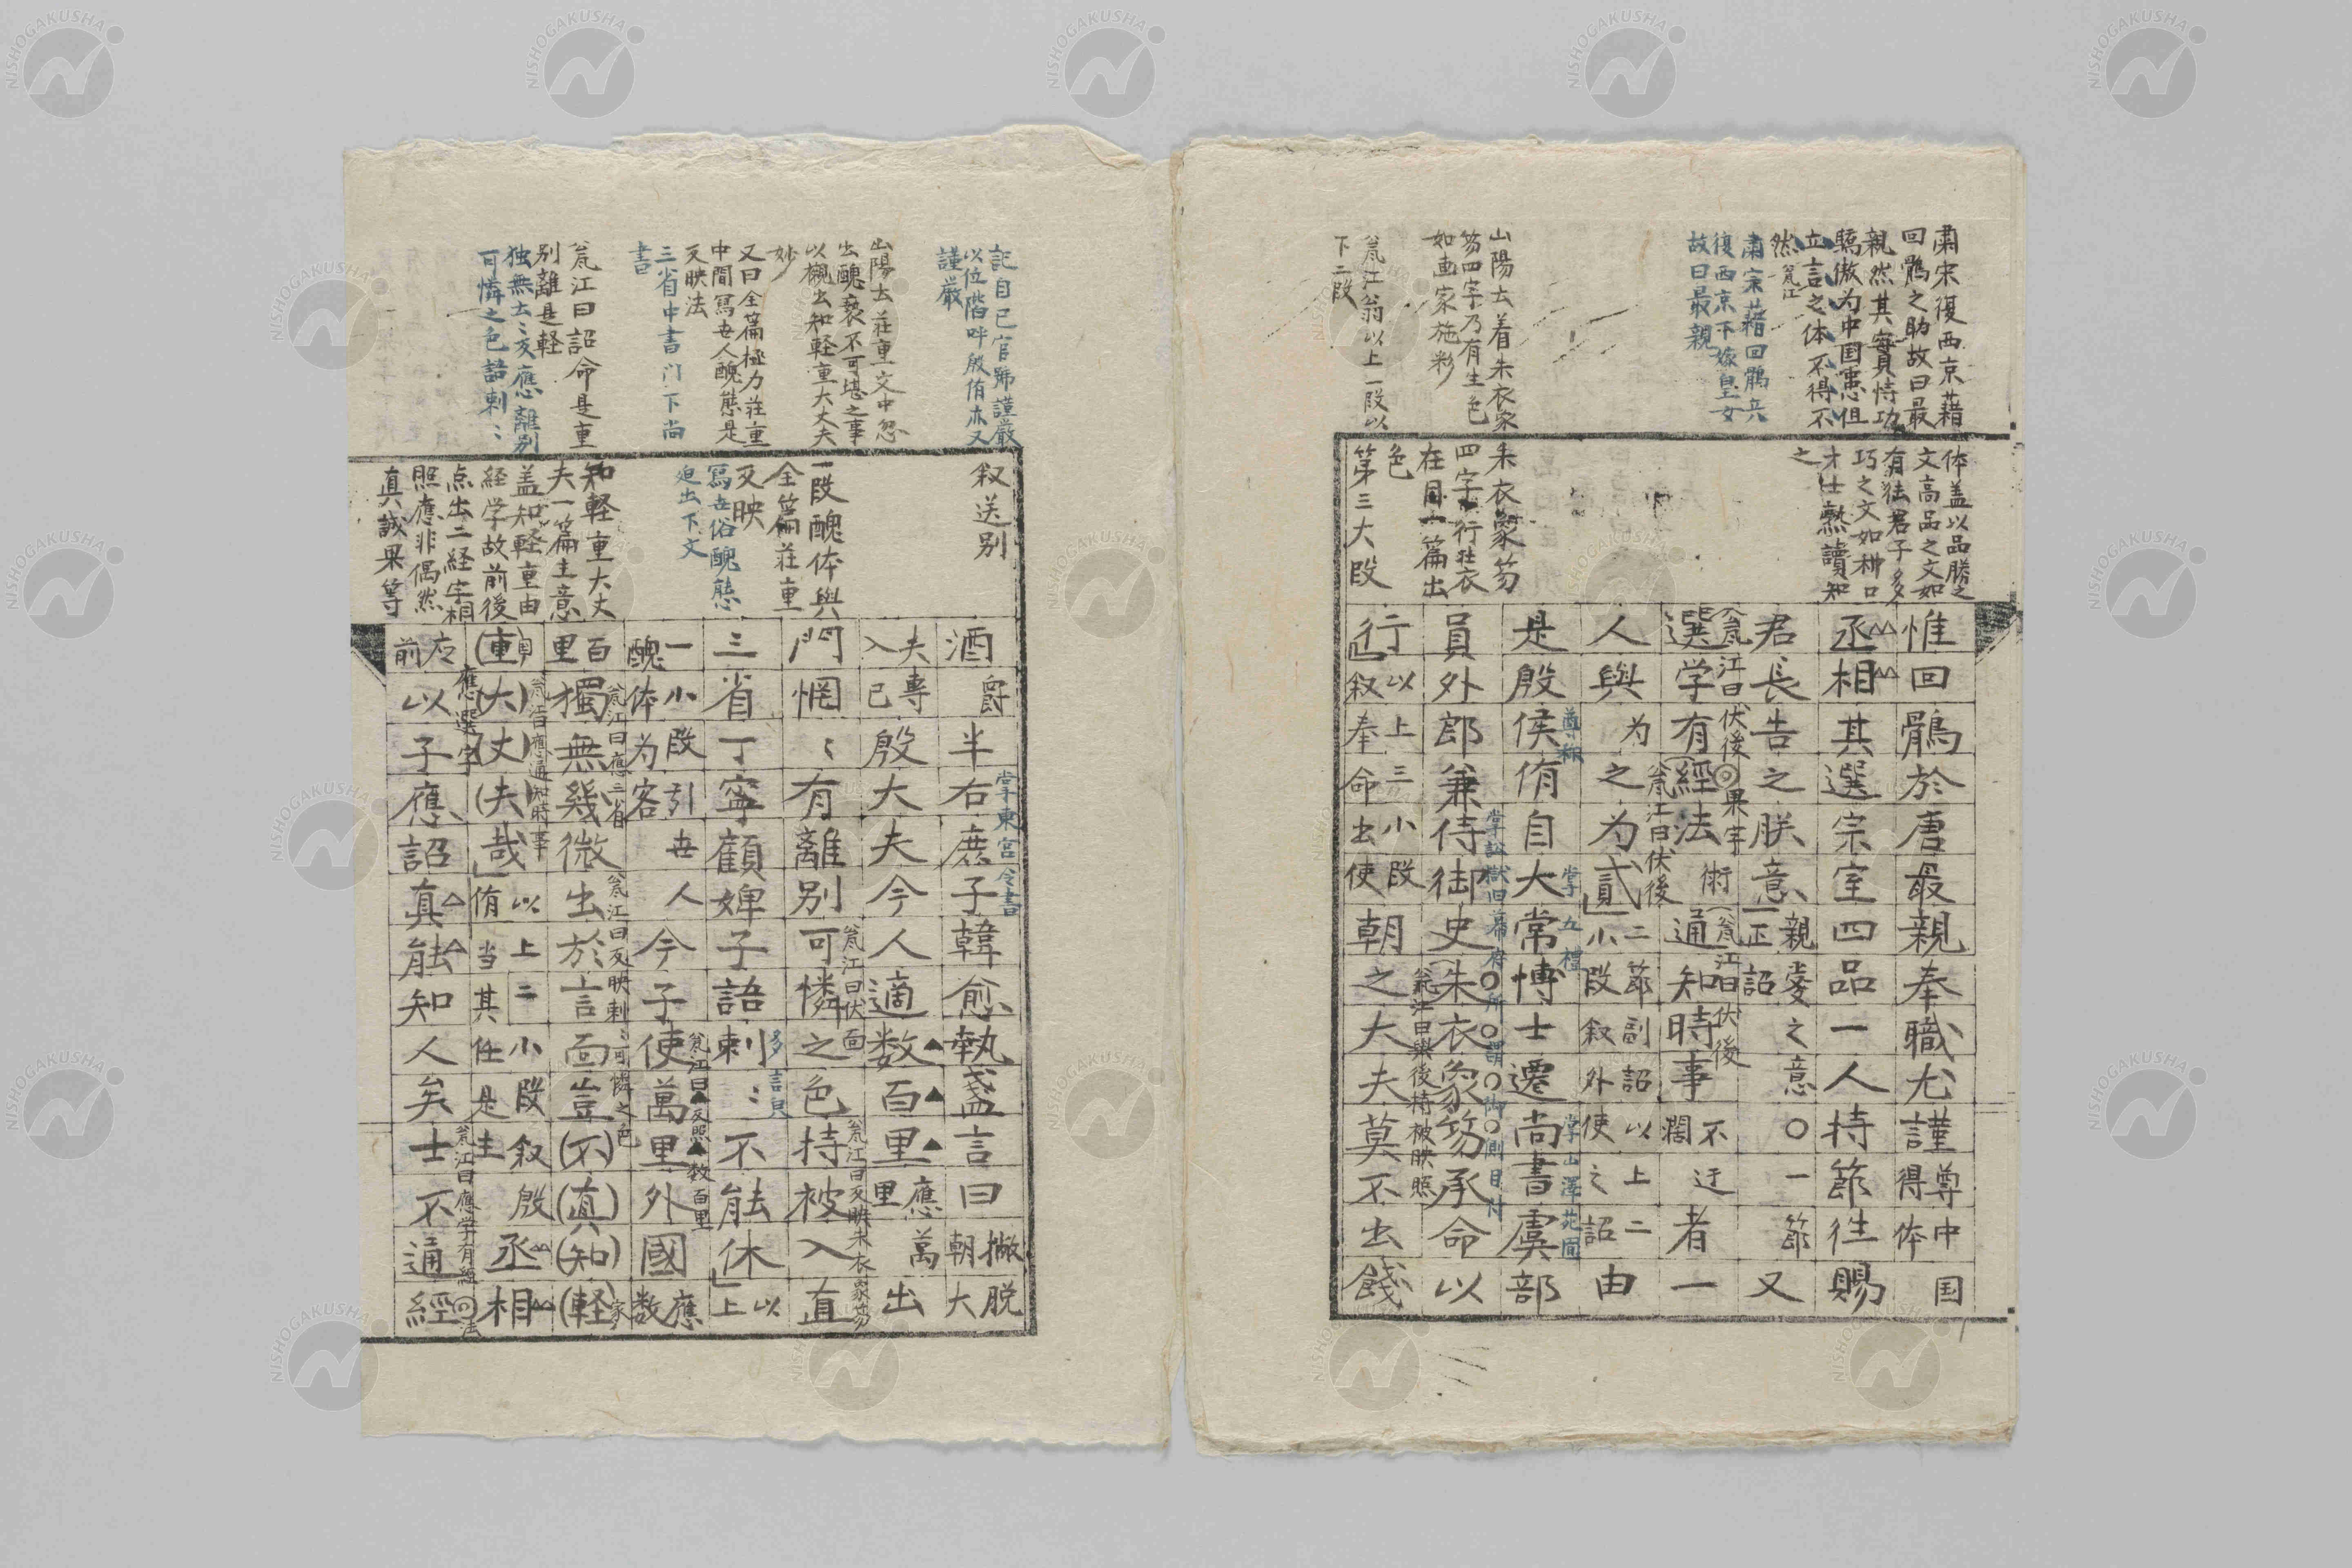 肅宋復西京藉
回鶻之助故曰最
親然其實恃功
驕傲为中国患但
立言之体不得不
然 瓮江
肅宗藉回鶻兵
復西京下嫁皇女
故曰最親
山陽云着朱衣象
笏四字乃有生色
如画家施彩
瓮江翁以上一段以
下二段
体盖以品勝之
文高品之文如
有徳君子多
巧之文如利口
才士熟讀知
之
朱衣象笏
四字
在目一篇出
色
第三大段
惟回鶻於唐最親奉職尤謹 尊中国得体
丞相其選宗室四品一人持節往賜
君長告之朕意 親愛之意 正詔 〇一節 又
瓮江曰伏後 果字
選学有經法 術 通知時事 不迂闊 者一
瓮江曰伏後
瓮江曰伏後
人與为之为貳 二節副詔以上二小段叙外使之詔 由
是殷侯侑自大常博士遷尚書虞部
尊称
掌五禮
掌山澤苑囿
員外郎兼侍御史朱衣象笏承命以
瓮江曰與後持被映照
行 以上三小段叙奉命出使 朝之大夫莫不出餞
記自己官職謹嚴
以位階呼殷侑亦又
謹嚴
山陽云荘重文中忽
出醜褻不可堪之事
以襯出知軽重大丈夫
妙
又曰全篇極力荘重
中間寫世人醜態是
反映法
三省中書門下尚
書
瓮江曰詔命是重
別離是軽
独無云〻反應離別
可憐之色語刺〻
叙送別
一段醜体與
全篇荘重
反映
寫世俗醜態
迫出下文
知軽重大丈
夫一篇主意
盖知軽重由
経学故前後
点出二経字相
照應非偶然
真誠果等
酒爵半右庶子韓愈執盞言曰 撇脱朝大
掌東宮令書
夫專入已 殷大夫今人適数百里 應萬里 出
門惘〻有離別可憐之色持被入直
瓮江曰伏面
瓮江曰反映朱衣象笏
三省丁寧顧婢子語刺〻不能休 以上
多言皃
一小段引世人醜体为客 今子使萬里外國 應数
瓮江曰反照数百里
百里 獨無幾微出於言面豈不真知軽
瓮江曰應三省
瓮江曰反映刺〻可憐之色
重大丈夫哉 以上二小段叙殷侑当其任是主 丞相
瓮江曰應通知時事
應前 以子應詔真能知人矣士不通經
應選字
瓮江曰應学有經法